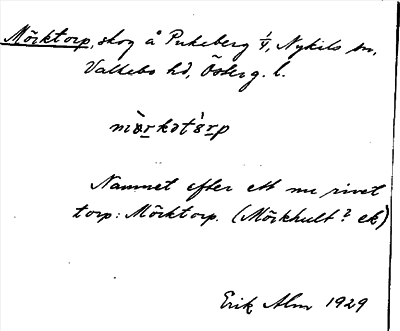 Mörktorp, skog å Pukeberg 1/4, Nykils sn,
Valkebo hd, Österg. l.
mörkətɔrp
Namnet efter ett nu rivet
torp: Mörktorp. (Mörkhult? ek)
Erik Alm 1929